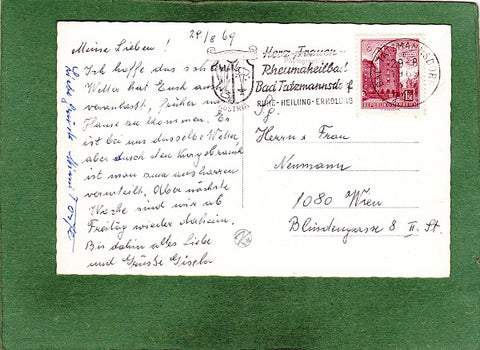 29/8 69
Meine Lieben!
Ich hoffe das schöne
Wetter hat Euch auch
veranlasst, früher nach
Hause zu kommen. Es
ist bei uns dasselbe Wetter,
aber durch den Kurgebrauch
ist man zum ausharren
verurteilt. Aber nächste
Woche sind wir ab
Freitag wieder daheim.
Bis dahin alles Liebe
und Grüsse Gisela
Herz, Frauen
Rheumaheilbad
Bad Tatzmannsdorf
RUHE-HEILUNG-ERHOLUNG
REPUBLIK ÖSTERREICH
Herrn u Frau
Neumann
1080 Wien
Blindengasse 8 II. St.